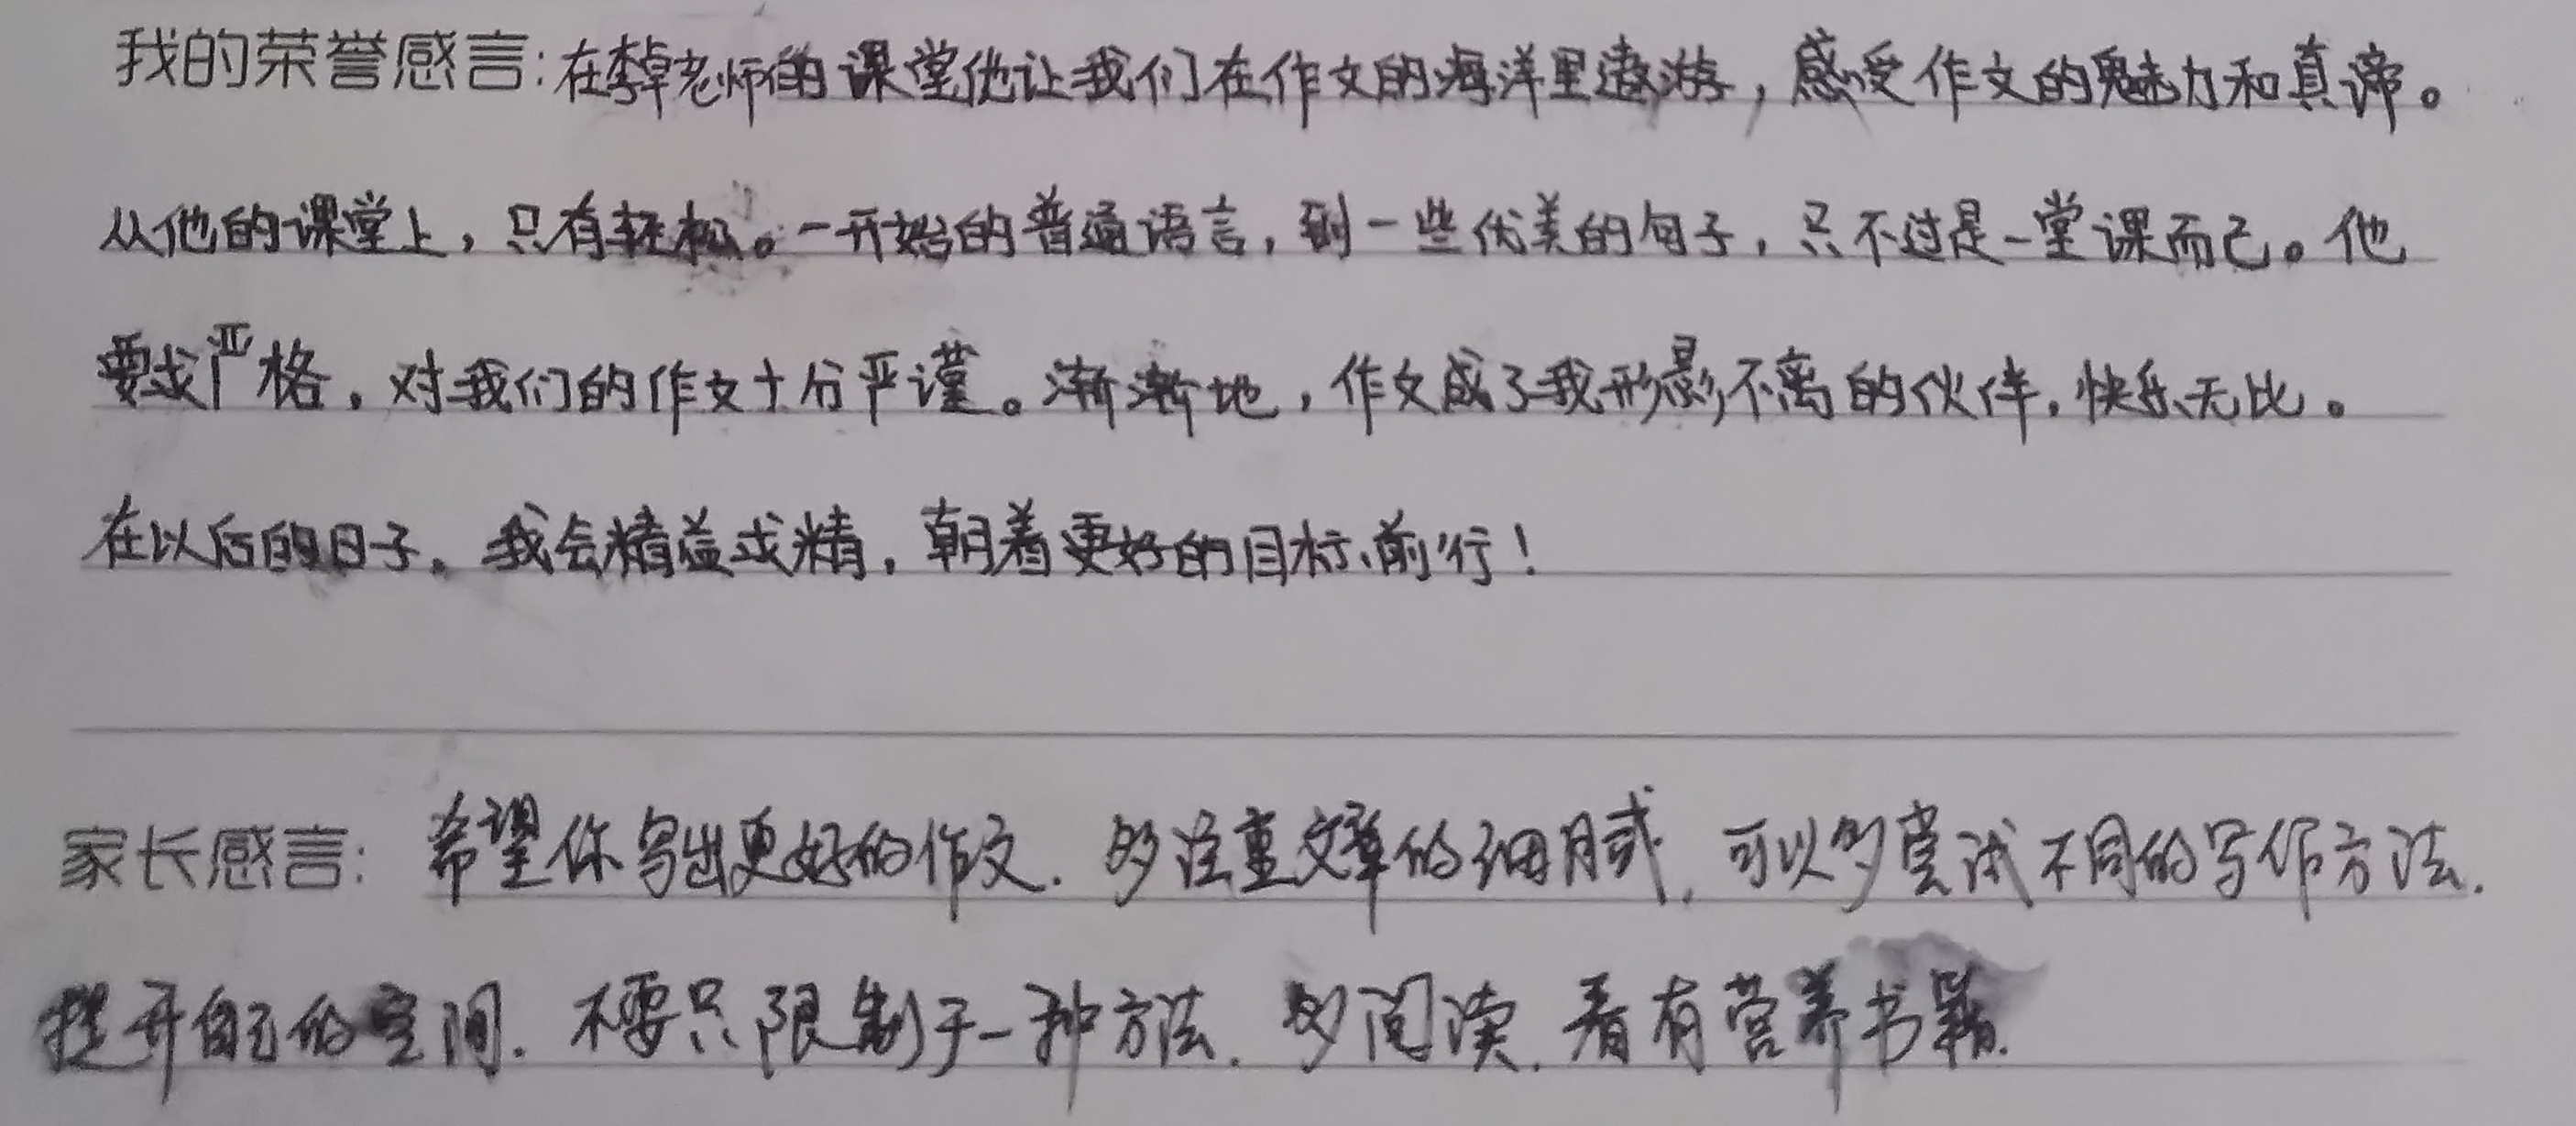 我的荣誉感言:在李卓老师的课堂他让我们在作文的海洋里遨游，感受作文的魅力和真谛。
从他的课堂上，只有轻松。一开始的普通语言，到一些优美的句子，只不过是一堂课而已。他
要求严格，对我们的作文十分严谨。渐渐地，作文成了我形影不离的伙伴，快乐无比。
在以后的日子，我会精益求精，朝着更好的目标前行！
家长感言: 希望你写出更好的作文. 多注重文章的细腻, 可以多尝试不同的写作方法.
提升自己的空间. 不要只限制于一种方法. 多阅读. 看有营养书籍.